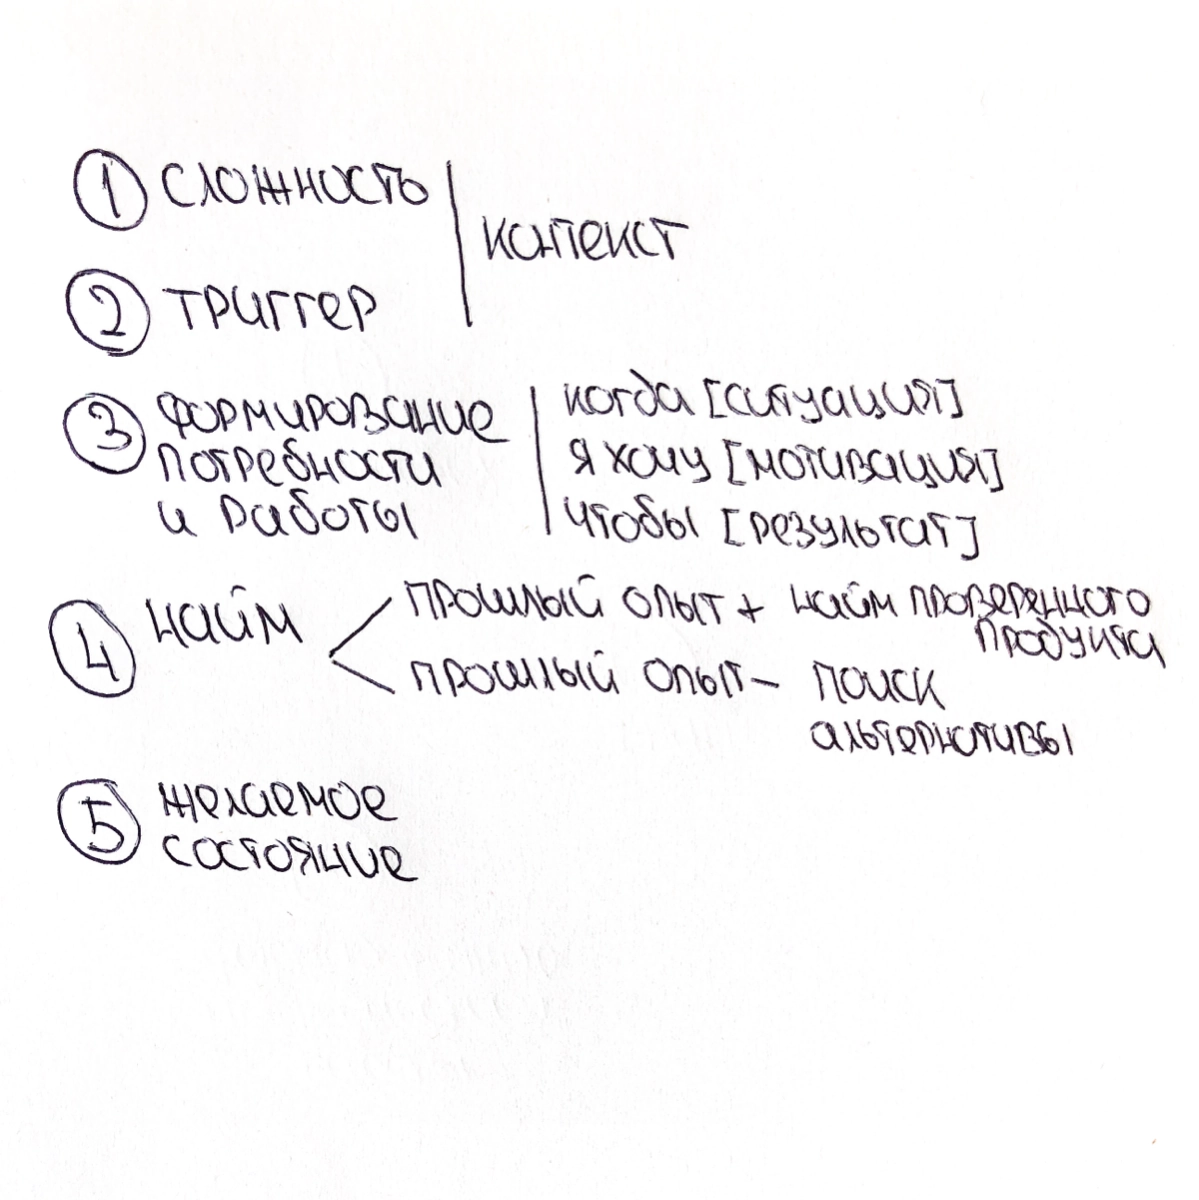 1 сложность
контекст
2 триггер
3 формирование
потребности
и работы
когда [ситуация]
я хочу [мотивация]
чтобы [результат]
4 найм
прошлый опыт + найм проверенного
продукта
прошлый опыт – поиск
альтернативы
5 желаемое
состояние